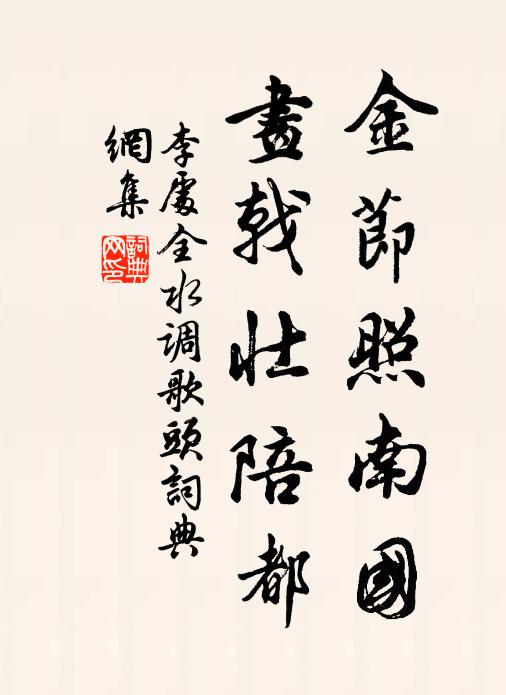 金節照南國
畫戟壯陪都
李處全水调歌頭詞典
網集
詞典網印